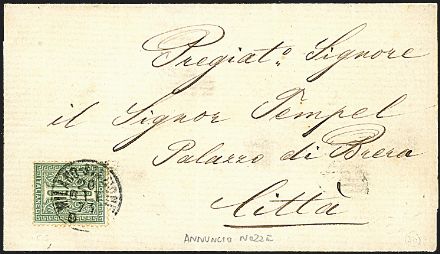 Pregiato. Signore
il Signor Tempel
Palazzo di Brera
Città
ANNUNCIO NOZZE